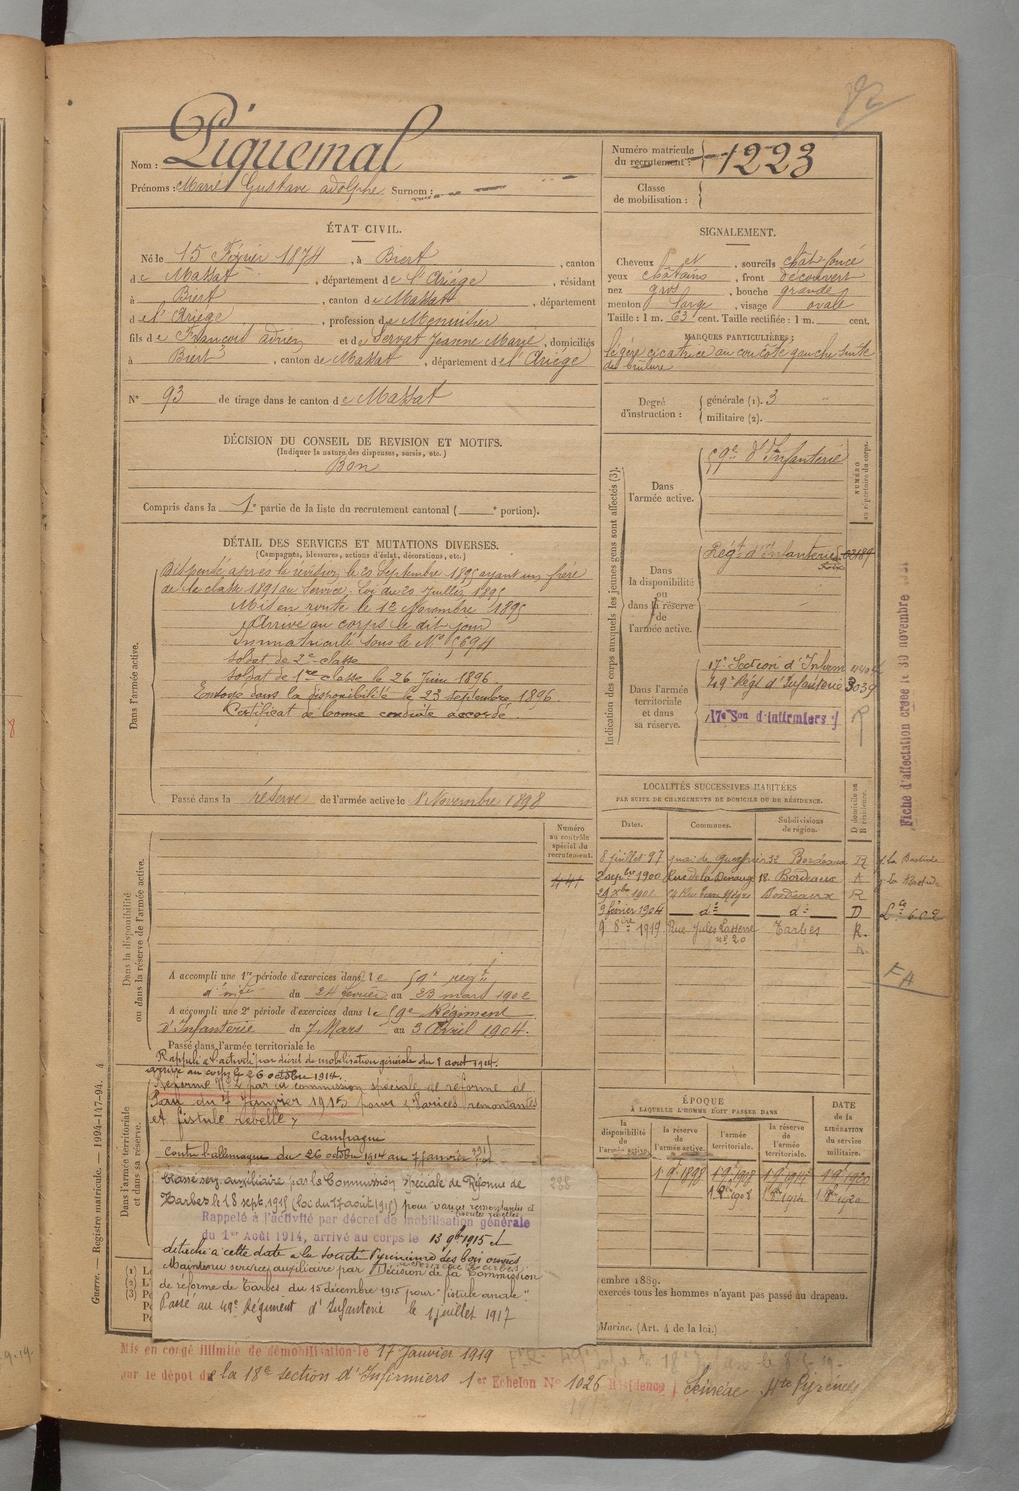 Nom : Piquemal
Prénoms : Marie Gustave adolphe Surnom :
Numéro matricule du recrutement : 1223
Classe de mobilisation :
ÉTAT CIVIL.
Né le 15 Février 1874, à Biert, canton
de Massat, département de l'Ariége, résidant
à Biert, canton de Massat, département
de l'Ariége, profession de Menuisier
fils de François adrien et de Servat Jeanne Marie, domiciliés
à Biert, canton de Massat, département de l'Ariége
N° 93 de tirage dans le canton de Massat
SIGNALEMENT.
Cheveux et, sourcils chât foncé
yeux châtains, front découvert
nez gros, bouche grande
menton large, visage ovale
Taille : 1 m. 63 cent. Taille rectifiée : 1 m. cent.
MARQUES PARTICULIÈRES :
légère cicatrice au cou côté gauche suite
de brûlure
Degré d'instruction : générale (1). 3
militaire (2).
DÉCISION DU CONSEIL DE REVISION ET MOTIFS.
(Indiquer la nature des dispenses, sursis, etc.)
Bon
Compris dans la 1e partie de la liste du recrutement cantonal ( e portion).
DÉTAIL DES SERVICES ET MUTATIONS DIVERSES.
(Campagnes, blessures, actions d'éclat, décorations, etc.)
Dans l'armée active.
Dispensé après la révision le 20 Septembre 1895 ayant un frère
de la classe 1891 au Service. Loi du 20 Juillet 1895
Mis en route le 12 Novembre 1895
Arrivé au corps le dit jour
Immatriculé sous le N° 5694
Soldat de 2e classe
Soldat de 1re classe le 26 Juin 1896.
Envoyé dans la disponibilité le 23 septembre 1896
Certificat de bonne conduite accordé.
Passé dans la réserve de l'armée active le 1er Novembre 1898
Indication des corps auxquels les jeunes gens sont affectés (3).
NUMÉRO au répertoire du corps.
Dans l'armée active.
59e d'Infanterie
Dans la disponibilité ou dans la réserve de l'armée active.
Régt d'Infanterie
Dans l'armée territoriale et dans sa réserve.
17e Section d'Inferm
49e Régt d'Infanterie 3039
17e Son d'infirmiers
Fiche d'affectation créée le 30 novembre
LOCALITÉS SUCCESSIVES HABITÉES
PAR SUITE DE CHANGEMENTS DE DOMICILE OU DE RÉSIDENCE.
Dates. Communes. Subdivisions de région. D domicile ou R résidence.
8 juillet 97 quai de 32 Bordeaux R
2 septbre 1900 Rue de la 18 Bordeaux R
Bordeaux R
3 février 1904 do do D
9 8bre 1919 Rue Jules Lasserre n° 20 Tarbes R.
FA
Dans la disponibilité ou dans la réserve de l'armée active.
Numéro au contrôle spécial du recrutement.
441
A accompli une 1re période d'exercices dans le 59e regt
d'inf du 24 février au 23 mars 1902
A accompli une 2e période d'exercices dans le 59e Régiment
d'Infanterie du 7 Mars au 3 Avril 1904.
Passé dans l'armée territoriale le
Rappelé à l'activité par décret de mobilisation générale du 1 août 1914.
arrivé au corps le 26 octobre 1914.
Dans l'armée territoriale et dans sa réserve.
Réformé N° 2 par la commission spéciale de réforme de
Pau du 7 Janvier 1915 pour "Varices remontantes
et fistule rebelle"
Campagne
Contre l'allemagne du 26 octobre 1914 au 7 janvier
Classé serv. auxiliaire par la Commission spéciale de Réforme de
Tarbes le 18 sept. 1915 (Loi du 17 août 1915) pour varices remontantes et
fistule rebelle
Rappelé à l'activité par décret de mobilisation générale
du 1er Août 1914, arrivé au corps le 13 9bre 1915 et
détaché à cette date à la société Pyrénéenne des bois ouvrés
Maintenu service auxiliaire par Décision de la Commission
de réforme de Tarbes du 15 décembre 1915 pour "fistule anale".
Passé au 49e Régiment d'Infanterie le 1 juillet 1917
288
ÉPOQUE
À LAQUELLE L'HOMME DOIT PASSER DANS
la disponibilité de l'armée active. la réserve de l'armée active. l'armée territoriale. la réserve de l'armée territoriale.
DATE de la LIBÉRATION du service militaire.
1 9bre 1898 1 9bre 1908 1 9bre 1914 1 9bre 1920
1 8bre 1908 1 8bre 1914 1 8bre 1920
embre 1889.
exercés tous les hommes n'ayant pas passé au drapeau.
Marine. (Art. 4 de la loi.)
Guerre. — Registre matricule. — 1994-147-94.
Mis en congé illimité de démobilisation le 17 Janvier 1919
par le dépôt de la 18e section d'Infirmiers 1er Echelon N° 1026 Résidence Htes Pyrénées